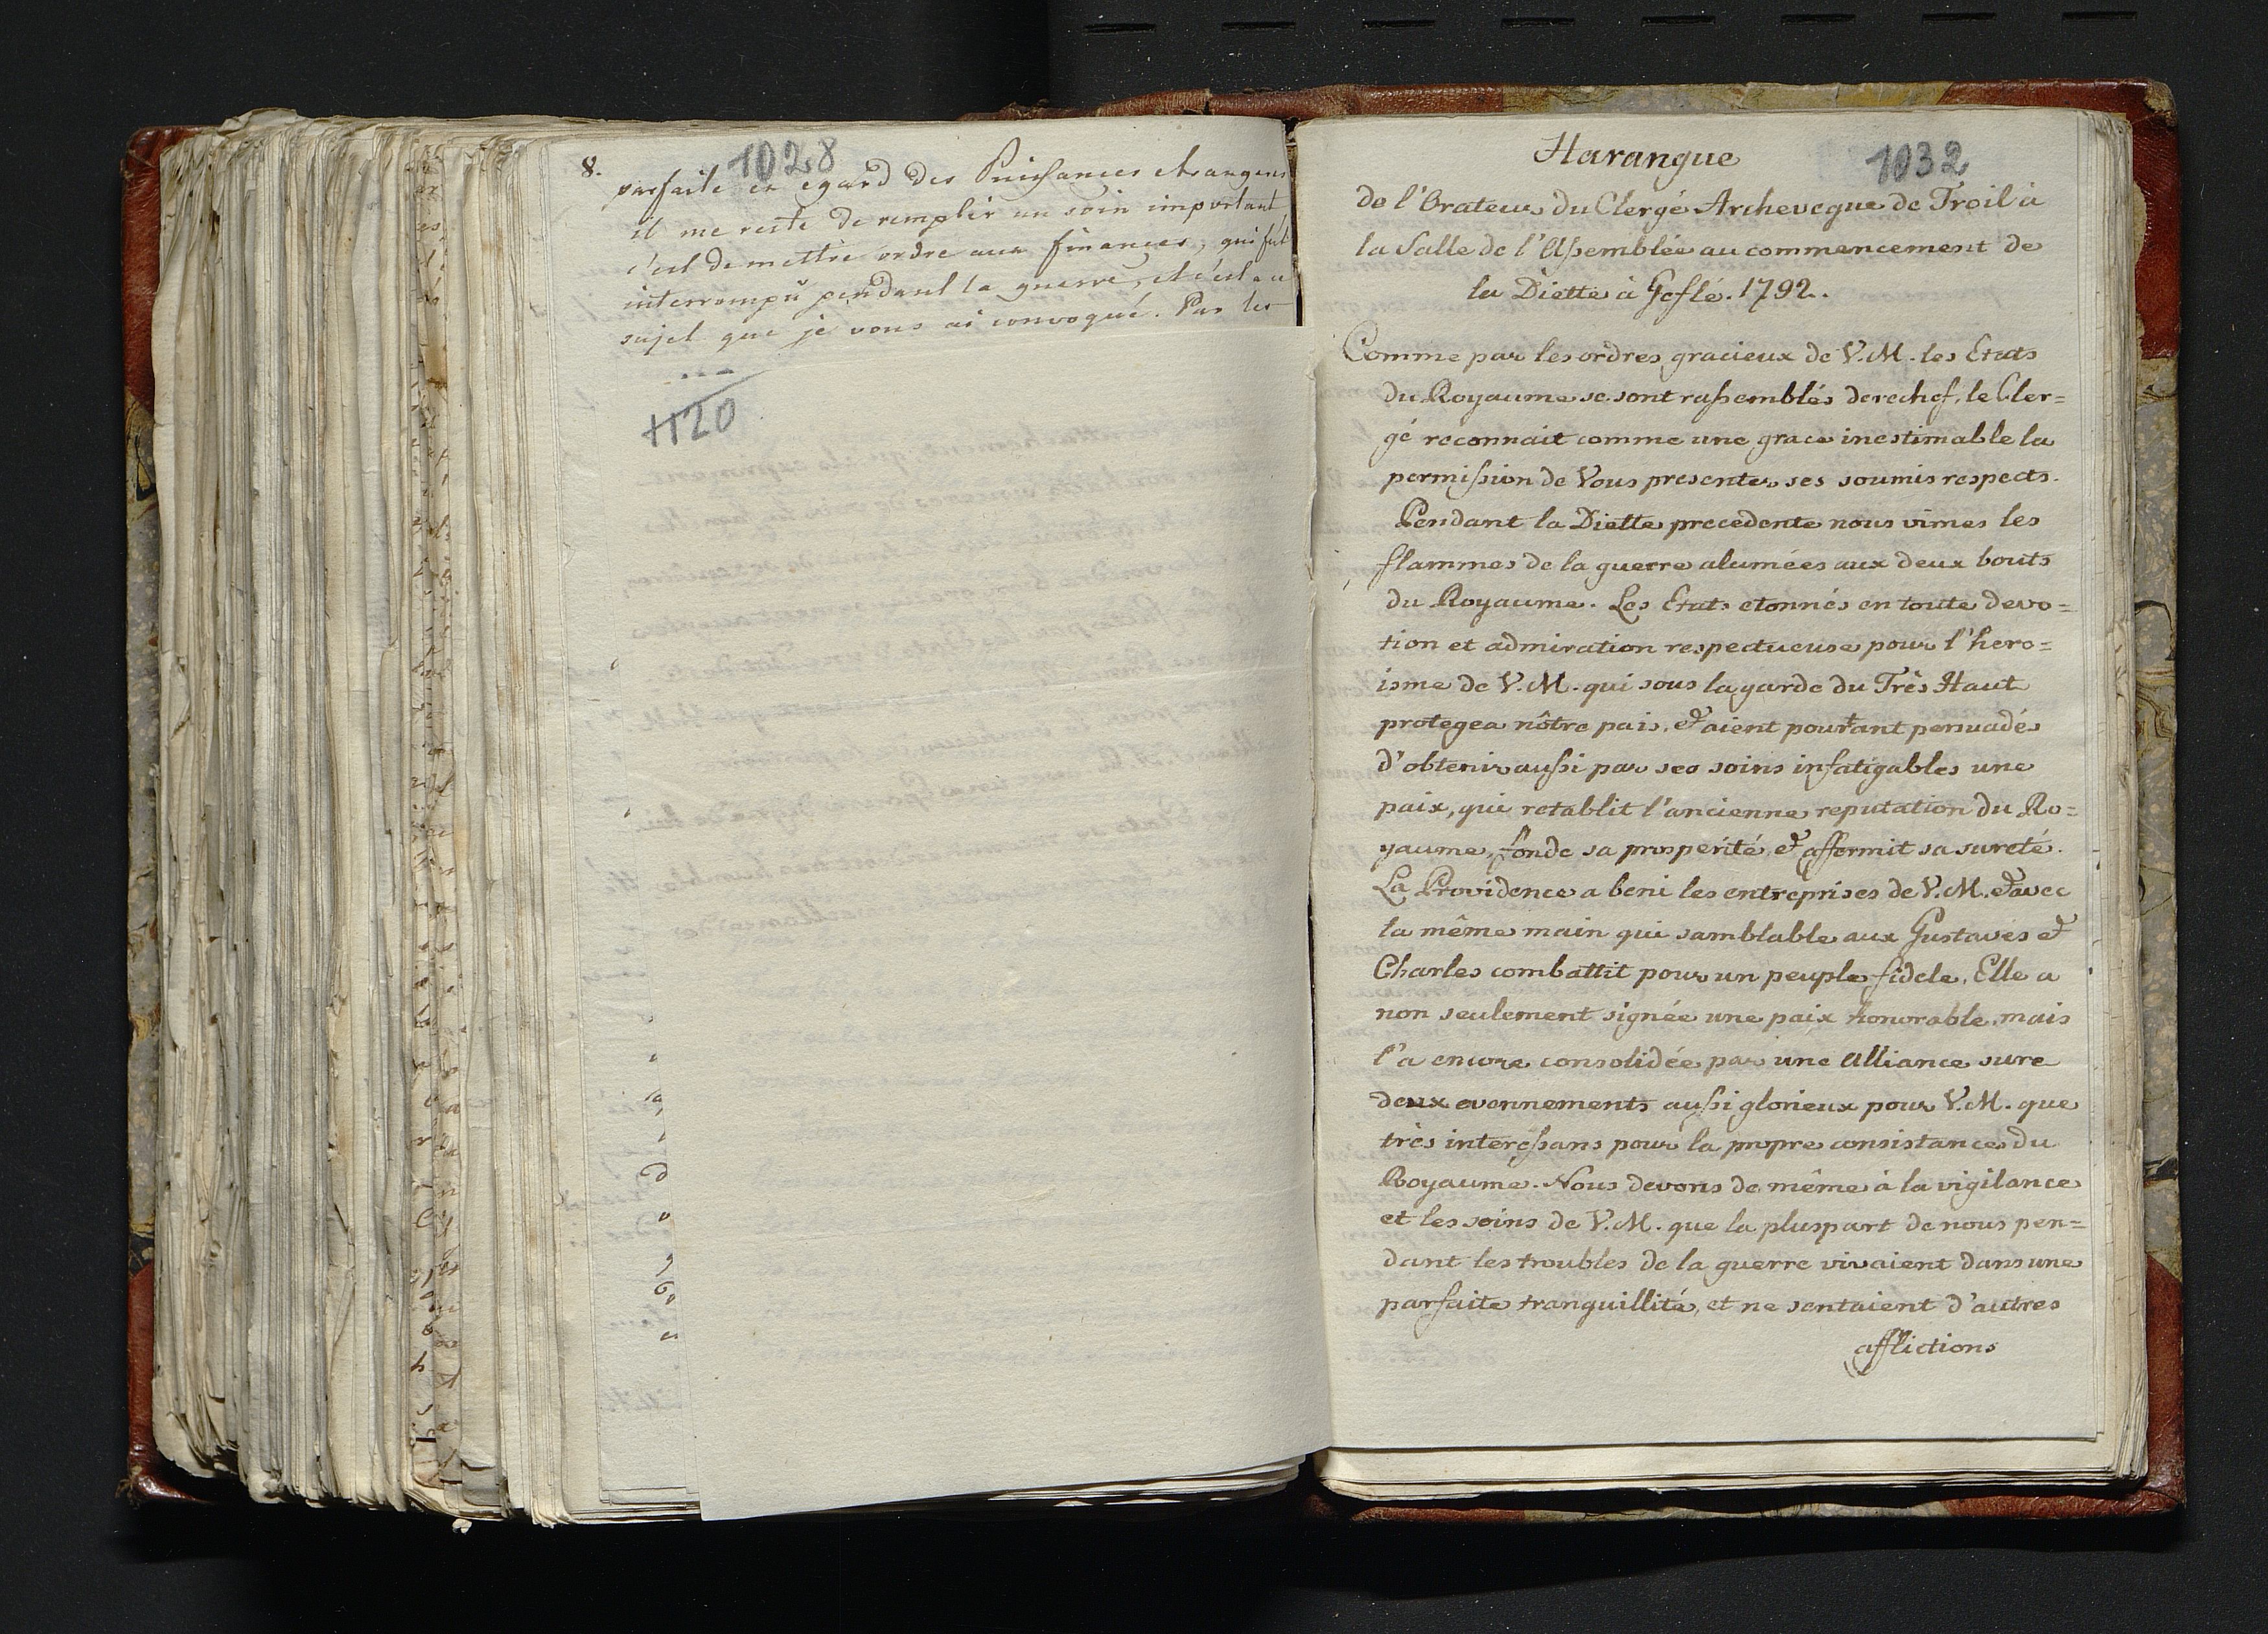 8.
1028
parfaite en egard des Puissances etrangeres
il me reste de remplir un soin important
c'est de mettre ordre aux finances, qui fut
interrompû pendant la guerre, et c'est a ce
sujet que je vous ai convoqué. Par les
1120
Harangue
1032
de l'Orateur du Clergé Archeveque de Troil à
la Salle de l'Assemblée au commencement de
la Diette à Gefle. 1792.
Comme par les ordres gracieux de V. M. les Etats
du Royaume se sont rassemblés derechef, le Cler=
gé reconnait comme une grace inestimable la
permission de Vous presenter ses soumis respects.
Pendant la Diette precedente nous vimes les
flammes de la guerre alumées aux deux bouts
du Royaume. Les Etats etonnés en toute devo=
tion et admiration respectueuse pour l'hero=
isme de V. M. qui sous la garde du Très Haut
protegea nôtre pais, etaient pourtant persuadés
d'obtenir aussi par ses soins infatigables une
paix, qui retablit l'ancienne reputation du Ro=
yaume, fonde sa prosperité, et affermit sa sureté.
La Providence a beni les entreprises de V. M. et avec
la même main qui samblable aux Gustaves et
Charles combattit pour un peuple fidele, Elle a
non seulement signée une paix honorable, mais
l'a encore consolidée par une alliance sure
deux evennements aussi glorieux pour V. M. que
très interessans pour la propre consistance du
Royaume. Nous devons de même à la vigilance
et les soins de V. M. que la pluspart de nous pen=
dant les troubles de la guerre vivaient dans une
parfaite tranquillité, et ne sentaient d'autres
afflictions